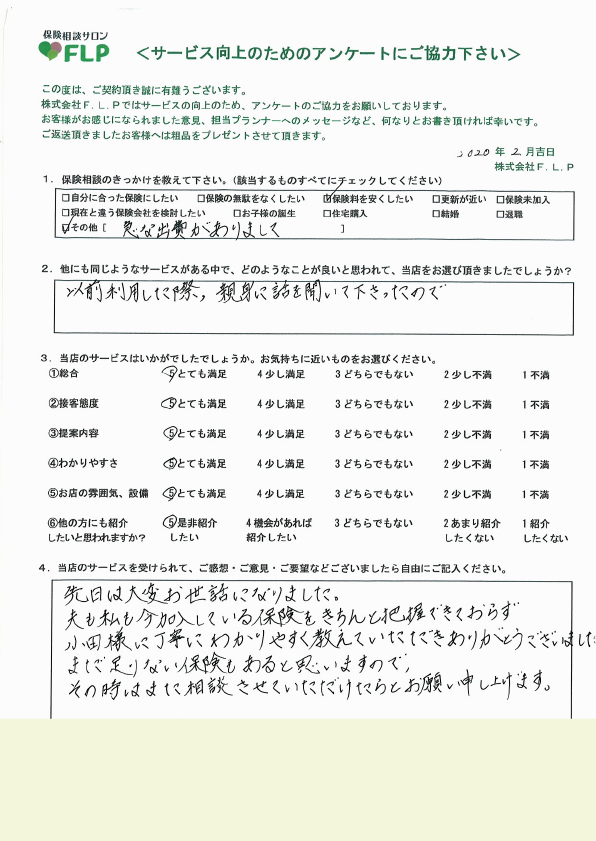 保険相談サロン
FLP
＜サービス向上のためのアンケートにご協力下さい＞
この度は、ご契約頂き誠に有難うございます。
株式会社Ｆ.Ｌ.Ｐではサービスの向上のため、アンケートのご協力をお願いしております。
お客様がお感じになられました意見、担当プランナーへのメッセージなど、何なりとお書き頂ければ幸いです。
ご返送頂きましたお客様へは粗品をプレゼントさせて頂きます。
2020 年 2 月吉日
株式会社Ｆ.Ｌ.Ｐ
１．保険相談のきっかけを教えて下さい。（該当するものすべてにチェックしてください）
□自分に合った保険にしたい □保険の無駄をなくしたい ☑保険料を安くしたい □更新が近い □保険未加入
□現在と違う保険会社を検討したい □お子様の誕生 □住宅購入 □結婚 □退職
☑その他［ 急な出費がありまして ］
２．他にも同じようなサービスがある中で、どのようなことが良いと思われて、当店をお選び頂きましたでしょうか？
以前利用した際，親身に話を聞いて下さったので
３．当店のサービスはいかがでしたでしょうか。お気持ちに近いものをお選びください。
①総合 5とても満足 4少し満足 3どちらでもない 2少し不満 1不満
②接客態度 5とても満足 4少し満足 3どちらでもない 2少し不満 1不満
③提案内容 5とても満足 4少し満足 3どちらでもない 2少し不満 1不満
④わかりやすさ 5とても満足 4少し満足 3どちらでもない 2少し不満 1不満
⑤お店の雰囲気、設備 5とても満足 4少し満足 3どちらでもない 2少し不満 1不満
⑥他の方にも紹介 5是非紹介 4機会があれば 3どちらでもない 2あまり紹介 1紹介
したいと思われますか？ したい 紹介したい したくない したくない
４．当店のサービスを受けられて、ご感想・ご意見・ご要望などございましたら自由にご記入ください。
先日は大変お世話になりました。
夫も私も今加入している保険をきちんと把握できておらず
小田様に丁寧にわかりやすく教えていただきありがとうございました
まだ足りない保険もあると思いますので，
その時はまた相談させていただけたらとお願い申し上げます。